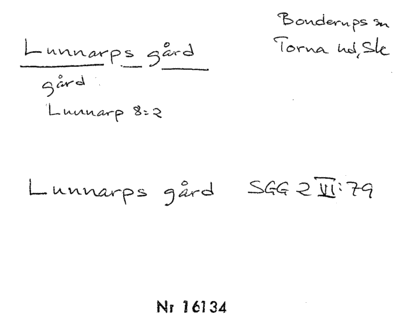 Lunnarps gård
gård
Lunnarp 8:2
Bonderups sn
Torna hd, Sk
Lunnarps gård SGG 2 VI:79
Nr 16134